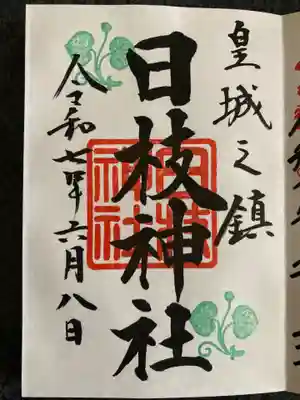 皇城之鎮
日枝神社
令和七年六月八日
日枝神社